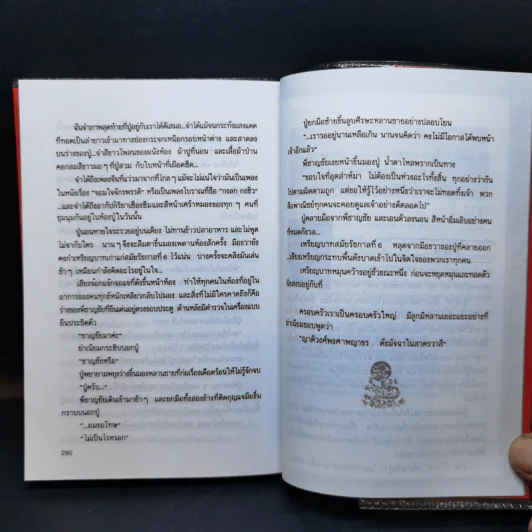 ฉันจำภาพสุดท้ายที่ปู่อยู่กับเราได้ดีเสมอ...จำได้แม้จนกระทั่งแสงแดด
ที่ทอดเป็นลำยาวเข้ามาทางช่องกระจกเหนือกรอบหน้าต่าง และสาดลง
บนร่างของปู่...จำสีขาวโพลนของผนังห้อง ผ้าปูที่นอน และเสื้อผ้าป่าน
คอกลมสีขาวมอ ๆ ที่ปู่สวม กับใบหน้าที่เผือดซีด...
จำได้ถึงเพลงจีนที่แว่วมาจากที่ไกล ๆ แม้จะไม่แน่ใจว่ามันเป็นเพลง
ในหนังเรื่อง "จอมใจจักรพรรดิ" หรือเป็นเพลงโบราณที่ชื่อ "กงลก กงชิว"
...และจำได้ถึงอากัปกิริยาเซื่องซึมและสีหน้าเศร้าหมองของทุก ๆ คนที่
ชุมนุมกันอยู่ในห้องปู่ในวันนั้น
ปู่นอนหายใจระรวยอยู่บนเตียง ไม่ทานข้าวปลาอาหาร และไม่พูด
ไม่จากับใคร นาน ๆ จึงจะลืมตาขึ้นมองเพดานห้องสักครั้ง มือขวายัง
คงกำเหรียญบาทเก่าแก่สมัยรัชกาลที่ 6 ไว้แน่น บางครั้งจะคลึงมันเล่น
ช้า ๆ เหมือนกำลังคิดอะไรอยู่ในใจ...
เสียงจ๊อกแจ๊กจอแจที่ดังขึ้นหน้าห้อง ทำให้ทุกคนในห้องที่อยู่ใน
อาการของคนทุกข์หนักเหลียวกลับไปมอง และสิ่งที่ไม่มีใครคาดถึงก็คือ
ร่างของพี่ชาญชัยที่ยืนเด่นอยู่ตรงขอบประตู ด้านหลังมีตำรวจในเครื่องแบบ
ยืนประชิดตัว
"ชาญชัยมาค่ะ"
ย่าเนียมกระซิบบอกปู่
"ชาญชัยหรือ"
ปู่พยายามพยุงร่างขึ้นมองหลานชายที่ก่อเรื่องเดือดร้อนให้ไม่รู้จักจบ
"ปู่ครับ..."
พี่ชาญชัยเดินเข้ามาช้า ๆ และยกมือทั้งสองข้างที่ติดกุญแจมือขึ้น
กราบบนอกปู่
"...ผมขอโทษ"
"ไม่เป็นไรหรอก"
290
ปู่ยกมือซ้ายขึ้นลูบศีรษะหลานชายอย่างปลอบโยน
"...เรารออยู่นานเหลือเกิน นานจนคิดว่า คงไม่มีโอกาสได้พบหน้า
เจ้าอีกแล้ว"
พี่ชาญชัยเงยหน้าขึ้นมองปู่ น้ำตาไหลพรากเป็นทาง
"ขอบใจที่อุตส่าห์มา ไม่ต้องเป็นห่วงอะไรทั้งสิ้น ทุกอย่างว่ากัน
ไปตามผิดตามถูก แต่ขอให้รู้ไว้อย่างหนึ่งว่าเราจะไม่ทอดทิ้งเจ้า พวก
สิงพาณิชย์ทุกคนจะคอยดูแลเจ้าอย่างดีตลอดไป"
ปู่คลายมือจากพี่ชาญชัย และเอนตัวลงนอน สีหน้าอิ่มเอิบอย่างคน
ที่หมดกังวล...
เหรียญบาทสมัยรัชกาลที่ 6 หลุดจากมือขวาของปู่ที่คลายออก
...เสียงเหรียญกระทบพื้นดังบาดเข้าไปในจิตใจของพวกเราทุกคน
เหรียญบาทหมุนคว้างอยู่ชั่วขณะหนึ่ง ก่อนจะหยุดหมุนและทอดตัว
นิ่งสงบอยู่กับที่
ครอบครัวเราเป็นครอบครัวใหญ่ มีลูกมีหลานเยอะแยะอย่างที่
ย่าเนียมชอบพูดว่า
"ญาติวงศ์พงศาพญาธร ดังมัจฉาในสาครวาสี"